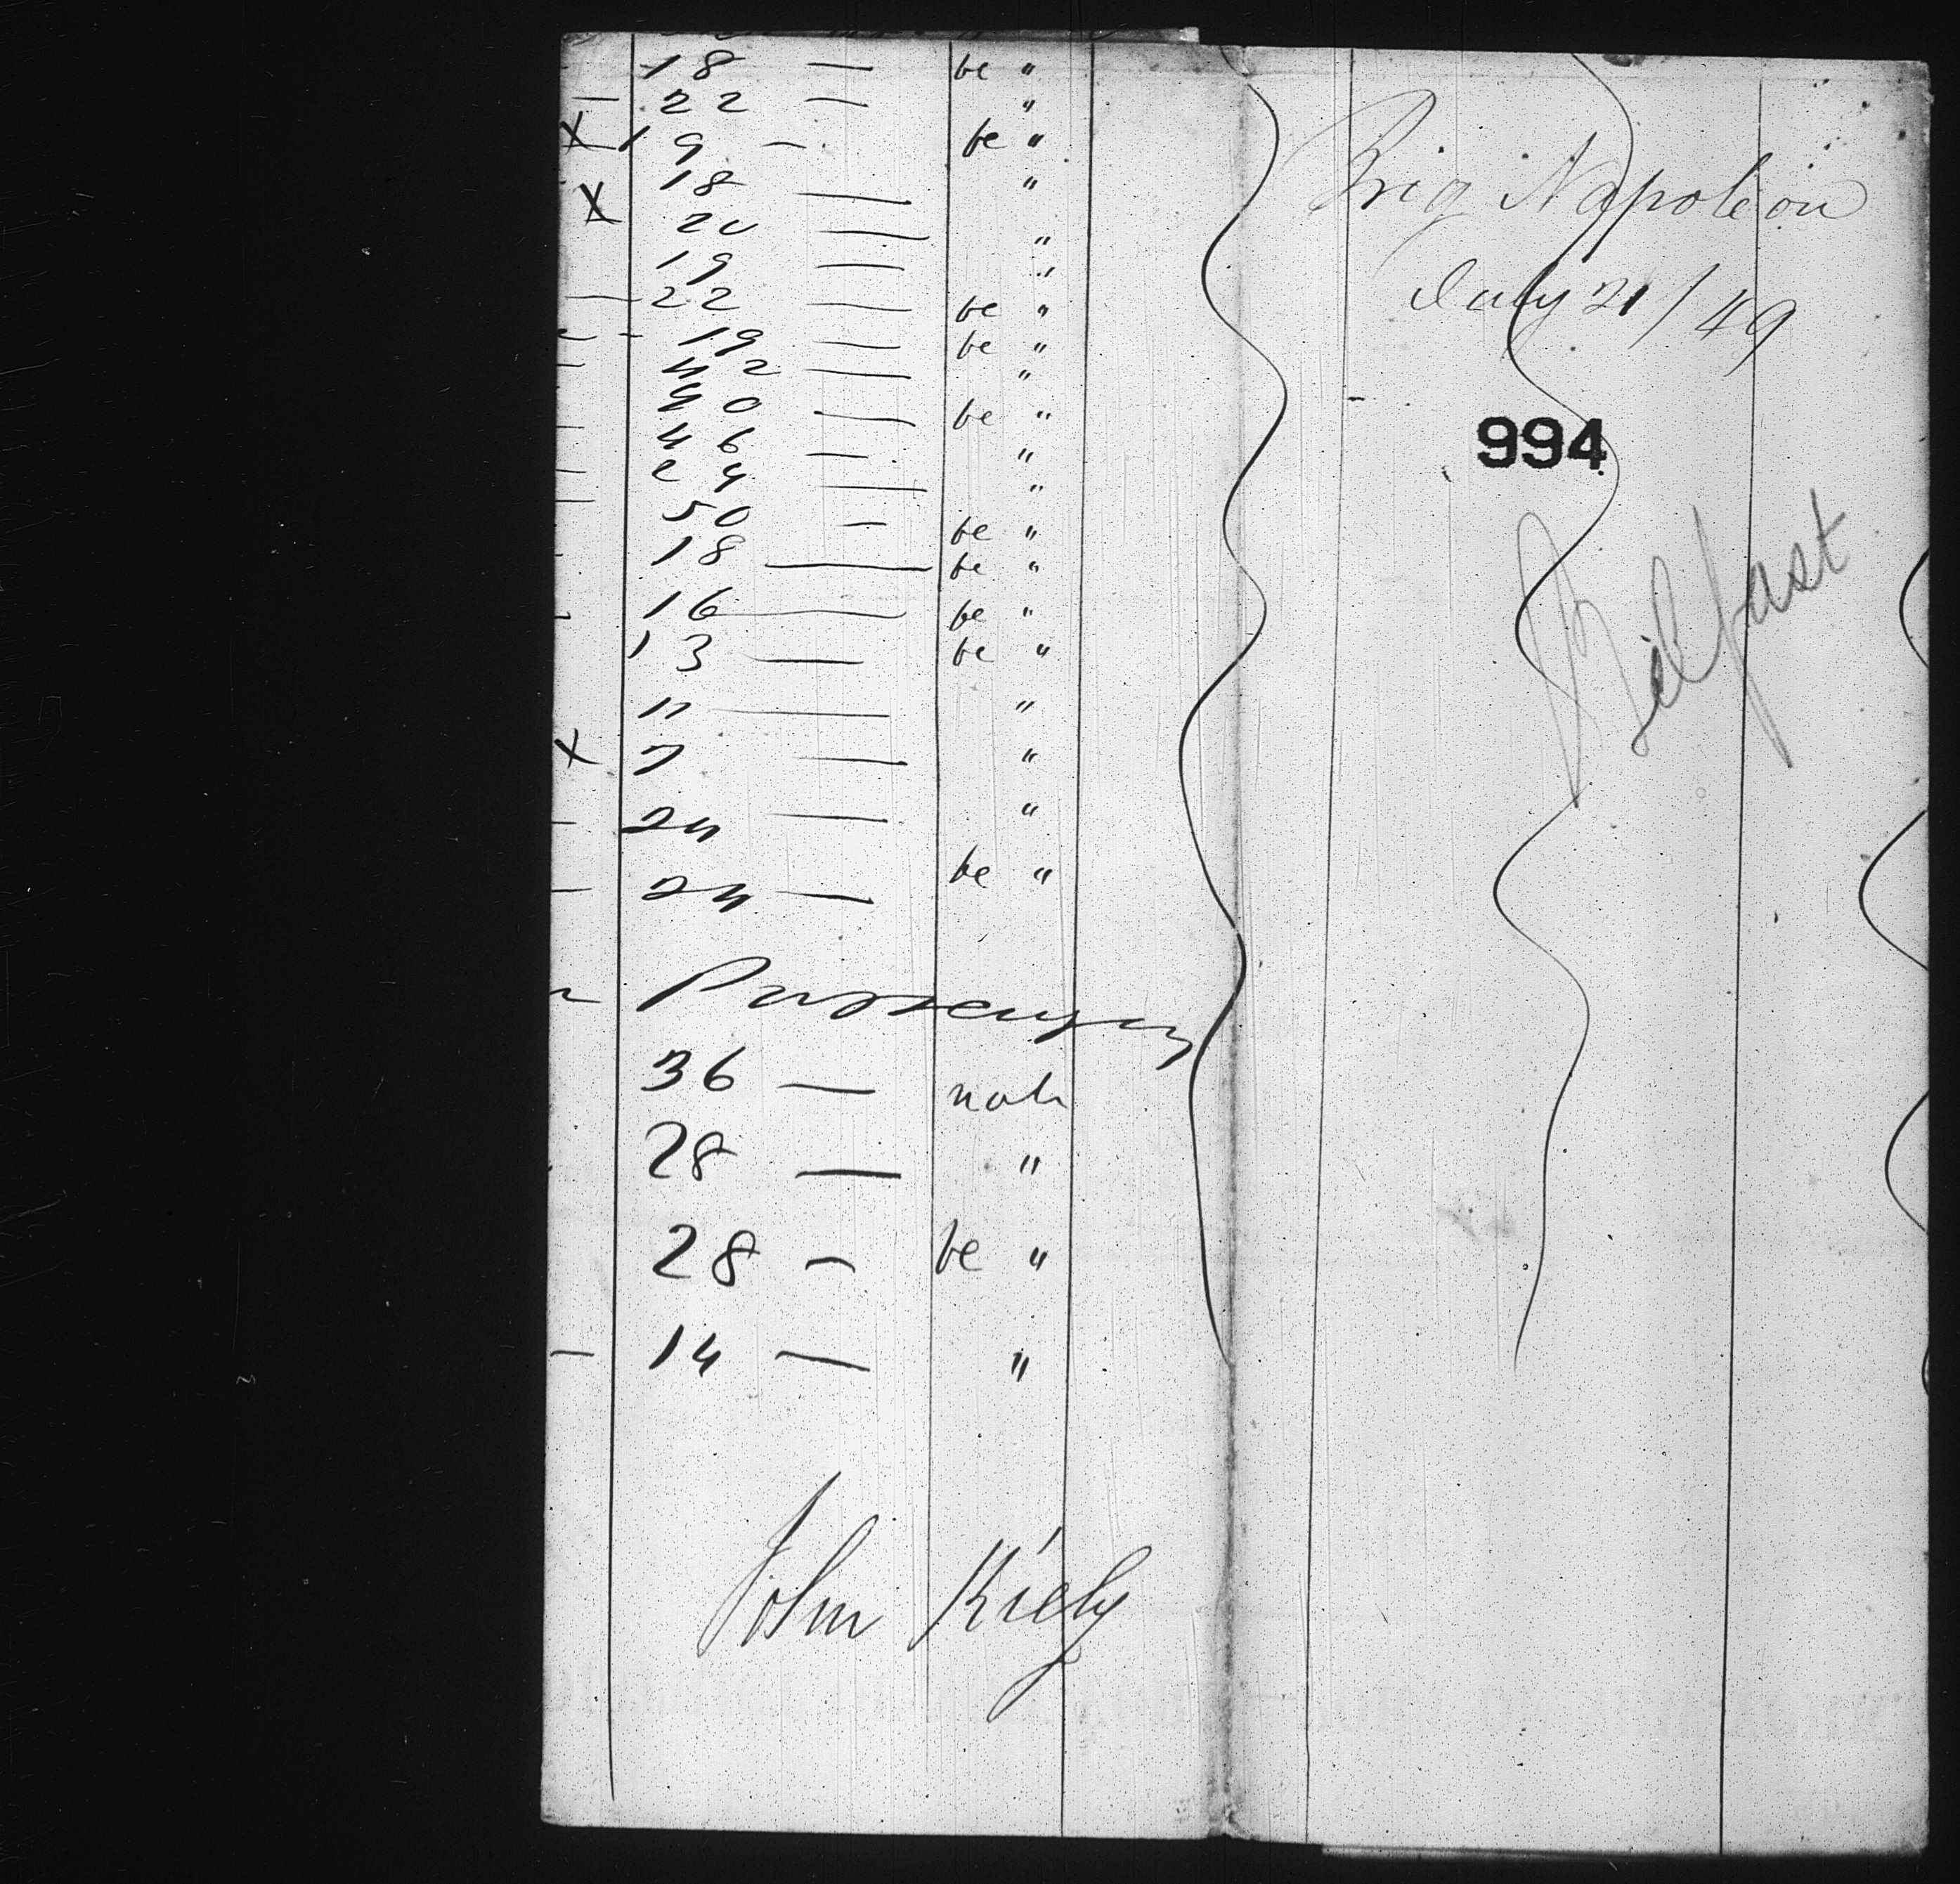 18 — be "
— 22 — "
X 19 — be "
X 18 — "
20 — "
19 — "
— 22 — be "
19 — be "
42 — "
40 — be "
46 — "
24 — "
50 — be "
18 — be "
16 — be "
13 — be "
11 — "
X 7 — "
— 24 — "
— 24 — be "
Passengers
36 —
28 — "
28 — be "
— 14 — "
John Kiely
Brig Napoleon
July 21/49
994
Belfast